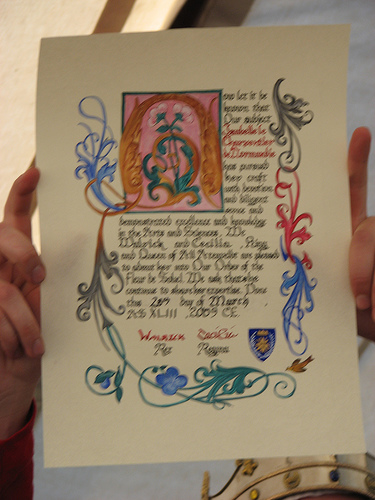 now let it be
known that
Our subject
Isabella le
Charpentier
de Normandie
has pursued
her craft
with devotion
and diligent
service and
demonstrated excellence and knowledge
in the Arts and Sciences. We
and Cecilia, King
and Queen of are pleased
to induct her into Our Order of the
Fleur de Soleil. We ask that she
continue to share her expertise. Done
this 28th day of March,
AS XLIII, 2009 CE.
Rex Regina